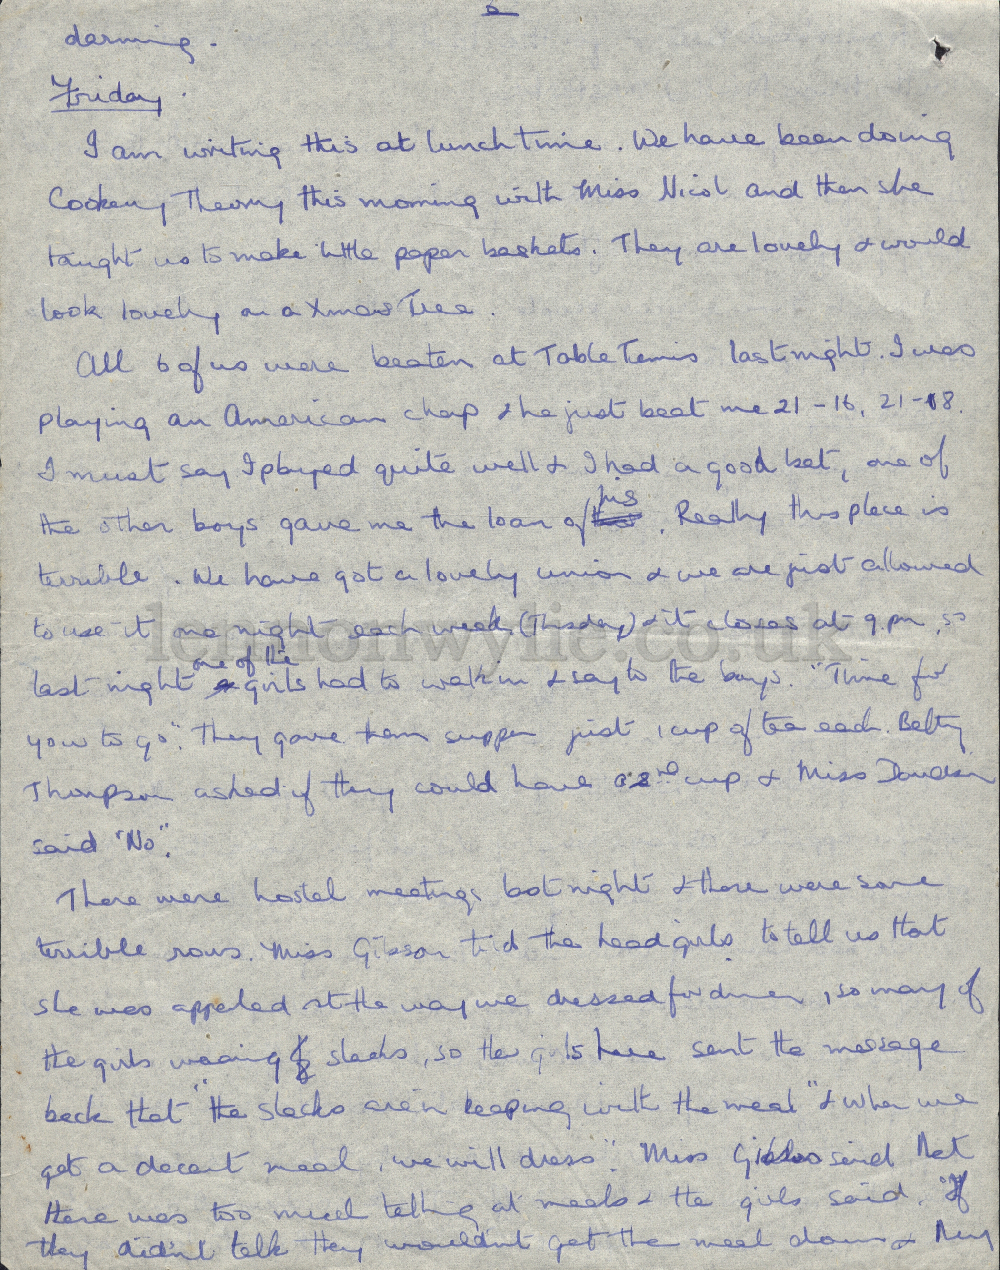 6
darning.
Friday.
I am writing this at lunch time. We have been doing
Cookery Theory this morning with Miss Nicol and then she
taught us to make little paper baskets. They are lovely & would
look lovely on a Xmas Tree.
All 6 of us were beaten at Table Tennis last night. I was
playing an American chap & he just beat me 21-16, 21-18.
I must say I played quite well & I had a good bat, one of
the other boys gave me the loan of his. Really this place is
terrible. We have got a lovely union & we are just allowed
to use it one night each week (Thursday) & it closes at 9.pm, so
last night one of the girls had to walk in & say to the boys. "Time for
you to go". They gave them supper just 1 cup of tea each. Betty
Thompson asked if they could have a 2nd cup & Miss Davidson
said "No".
There were hostel meetings last night & there were some
terrible rows. Miss Gibson told the head girls to tell us that
she was appaled at the way we dressed for dinner, so many of
the girls wearing slacks, so the girls here sent the message
back that "the slacks are in keeping with the meal" & when we
get a decent meal, we will dress". Miss Gibson said that
there was too much talking at meals & the girls said. "If
they didn't talk they wouldn't get the meal down & they
lennonwylie.co.uk